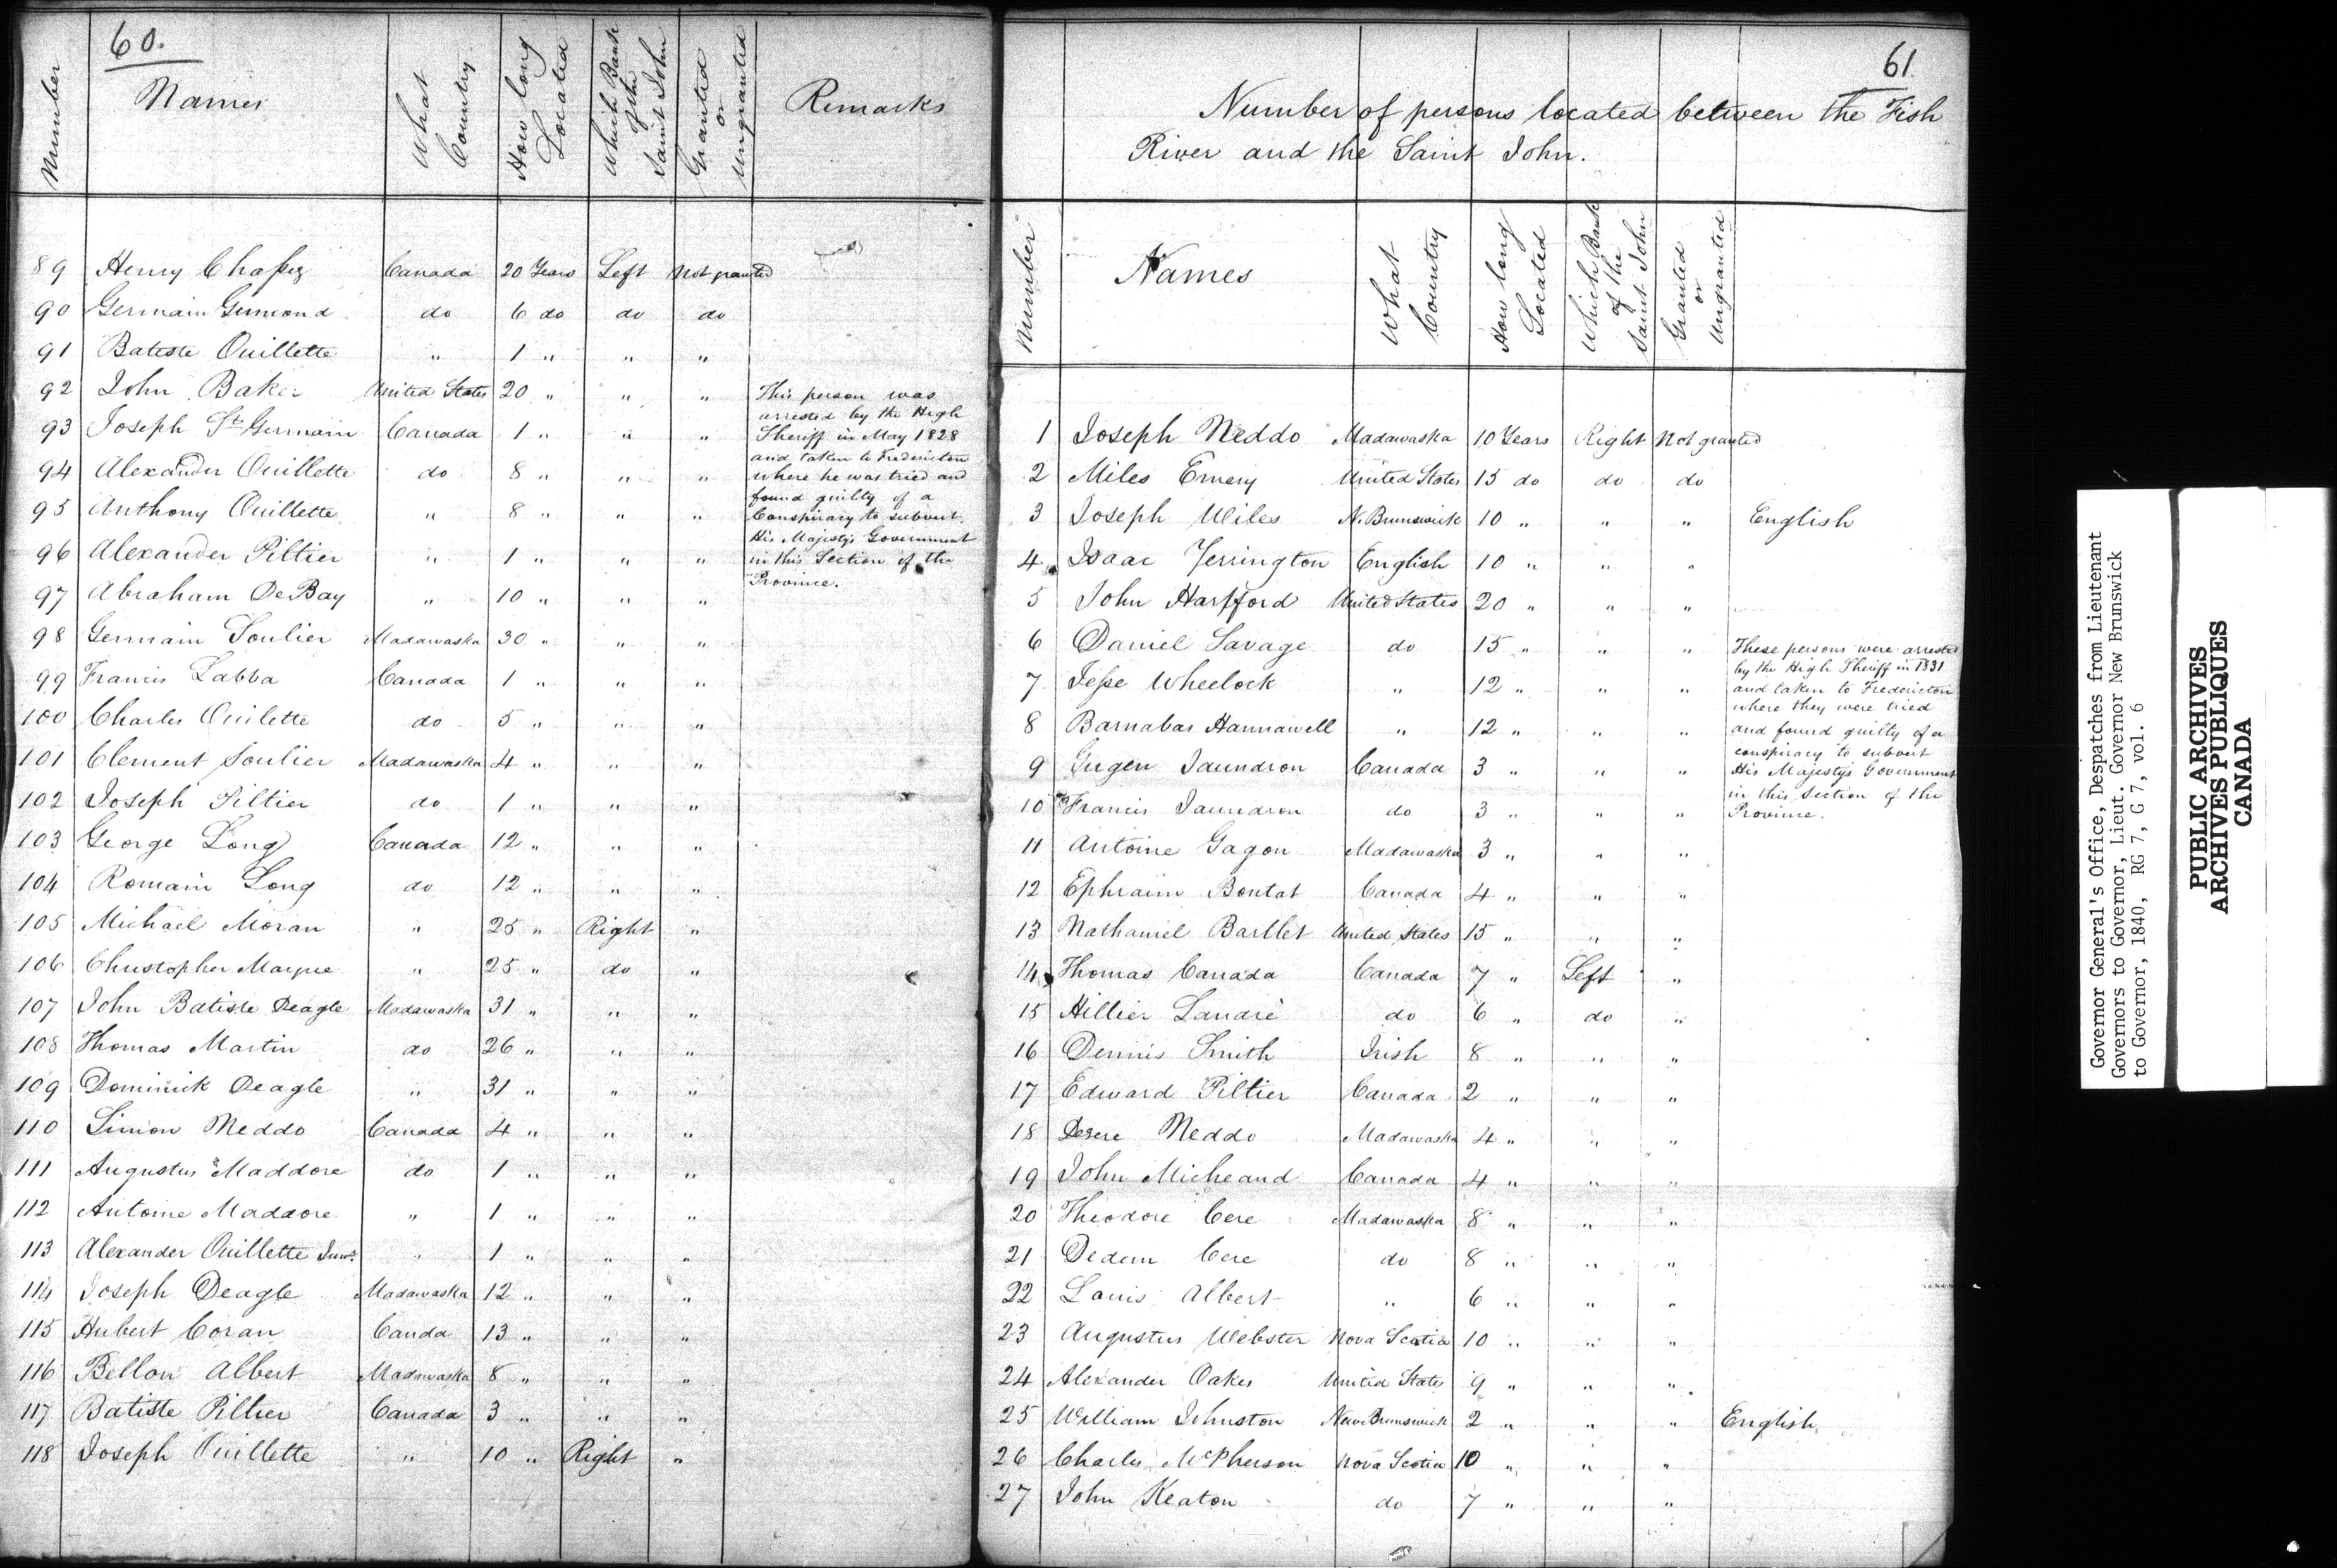 60.
Number
Names
What Country
How long Located
Which Bank of the Saint John
Granted or Ungranted
Remarks
89 Henry Chaſsez Canada 20 Years Left Not granted
90 Germain Gumond do 6 do do do
91 Batiste Ouillette " 1 " " "
92 John Baker United States 20 " " "
This person was
arrested by the High
Sheriff in May 1828
and taken to Fredericton
where he was tried and
found guilty of a
Conspiracy to subvert
His Majestys Government
in this Section of the
Province.
93 Joseph St Germain Canada 1 " " "
94 Alexander Ouillette do 8 " " "
95 Anthony Ouillette " 8 " " "
96 Alexander Piltier " 1 " " "
97 Abraham DeBay " 10 " " "
98 Germain Soulier Madawaska 30 " " "
99 Francis Labba Canada 1 " " "
100 Charles Ouilette do 5 " " "
101 Clement Soulier Madawaska 4 " " "
102 Joseph Piltier do 1 " " "
103 George Long Canada 12 " " "
104 Romain Long do 12 " " "
105 Michael Moran " 25 " Right "
106 Christopher Marque " 25 " do "
107 John Batiste Deagle Madawaska 31 " " "
108 Thomas Martin do 26 " " "
109 Dominick Deagle " 31 " " "
110 Simon Neddo Canada 4 " " "
111 Augustus Maddore do 1 " " "
112 Antoine Maddore " 1 " " "
113 Alexander Ouillette Junr. " 1 " " "
114 Joseph Deagle Madawaska 12 " " "
115 Hubert Coran Canda 13 " " "
116 Bellon Albert Madawaska 8 " " "
117 Batiste Piltier Canada 3 " " "
118 Joseph Ouillette " 10 " Right "
61
Number of persons located between the Fish
River and the Saint John.
Number
Names
What Country
How long Located
Which Bank of the Saint John
Granted or Ungranted
1 Joseph Neddo Madawaska 10 Years Right Not granted
2 Miles Emery United States 15 do do do
3 Joseph Wiles N. Brunswick 10 " " " English
4 Isaac Yerrington English 10 " " "
5 John Harfford United States 20 " " "
6 Daniel Savage do 15 " " "
7 Jeſse Wheelock " 12 " " "
8 Barnabas Hannawell " 12 " " "
These persons were arrested
by the High Sheriff in 1831
and taken to Fredericton
where they were tried
and found guilty of a
conspiracy to subvert
His Majestys Government
in this Section of the
Province.
9 Gugen Jaundron Canada 3 " " "
10 Francis Jaundron do 3 " " "
11 Antoine Gagon Madawaska 3 " " "
12 Ephraim Boutat Canada 4 " " "
13 Nathaniel Bartlet United States 15 " " "
14 Thomas Canada Canada 7 " Left "
15 Hillier Landré do 6 " do "
16 Dennis Smith Irish 8 " " "
17 Edward Piltier Canada 2 " " "
18 Dezere Neddo Madawaska 4 " " "
19 John Micheaud Canada 4 " " "
20 Theodore Cere Madawaska 8 " " "
21 Dedem Cere do 8 " " "
22 Louis Albert " 6 " " "
23 Augustus Webster Nova Scotia 10 " " "
24 Alexander Oakes United States 9 " " "
25 William Johnston New Brunswick 2 " " " English
26 Charles McPherson Nova Scotia 10 " " "
27 John Keaton do 7 " " "
Governor General's Office, Despatches from Lieutenant
Governors to Governor, Lieut. Governor New Brunswick
to Governor, 1840, RG 7, G 7, vol. 6
PUBLIC ARCHIVES
ARCHIVES PUBLIQUES
CANADA